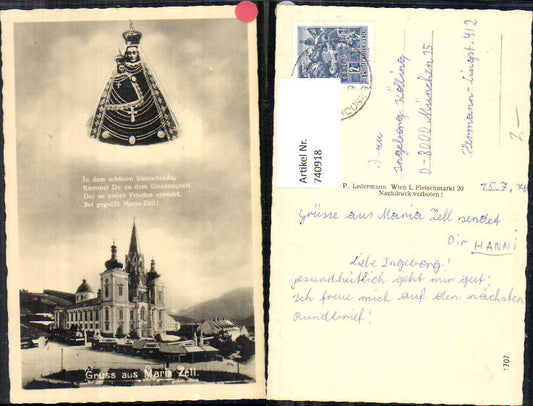 In dem schönen Steirerlande,
Kommst Du zu dem Gnadenquell,
Der so vielen Frieden spendet,
Sei gegrüßt Maria-Zell!
Gruss aus Maria Zell.
Artikel Nr.
740918
P. Ledermann Wien I. Fleischmarkt 20
Nachdruck verboten!
Frau
Ingeborg Kölling
D-8000 München 15
Hermann-Lingst. 412
2.-
25.7.
Grüsse aus Maria Zell sendet
Dir HANNI
Liebe Ingeborg!
gesundheitlich geht mir gut!
Ich freue mich auf den nächsten
Rundbrief!
1707